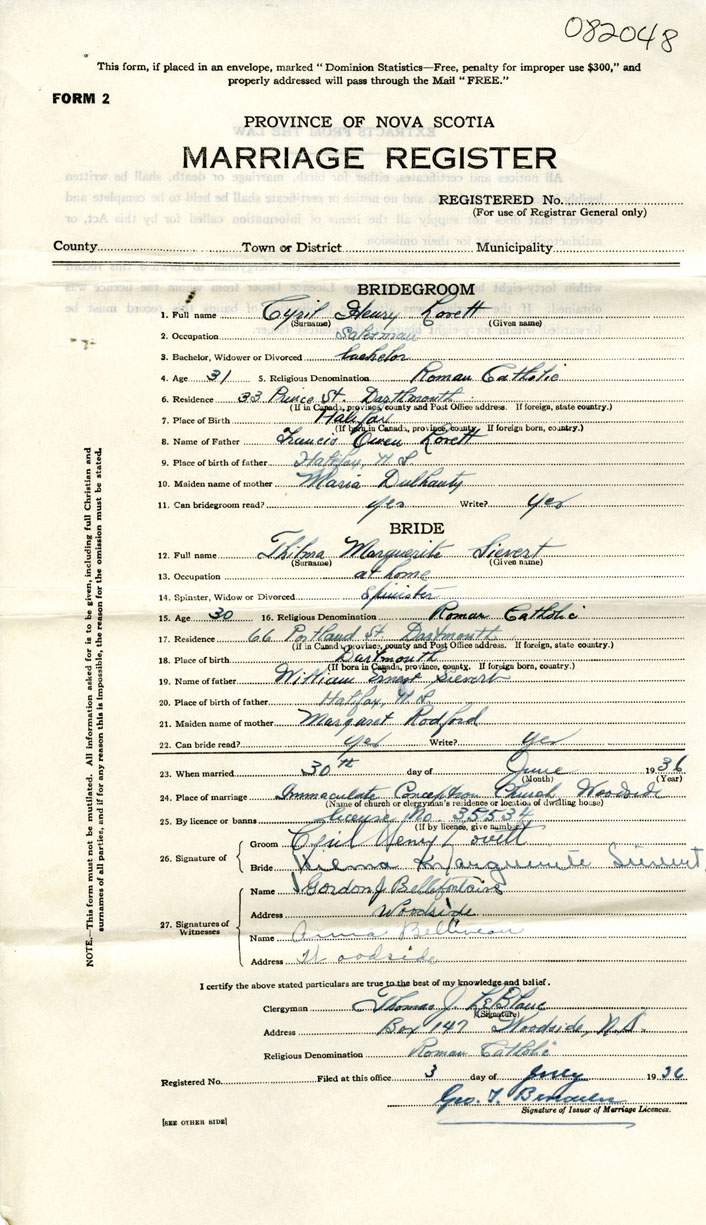 082048
This form, if placed in an envelope, marked "Dominion Statistics—Free, penalty for improper use $300," and
properly addressed will pass through the Mail "FREE."
FORM 2
PROVINCE OF NOVA SCOTIA
MARRIAGE REGISTER
REGISTERED No.
(For use of Registrar General only)
County Town or District Municipality
BRIDEGROOM
1. Full name Cyril Henry Lovett
(Surname) (Given name)
2. Occupation Salesman
3. Bachelor, Widower or Divorced bachelor
4. Age 31 5. Religious Denomination Roman Catholic
6. Residence 33 Prince St. Dartmouth
(If in Canada, province, county and Post Office address. If foreign, state country.)
7. Place of Birth Halifax
(If born in Canada, province, county. If foreign born, country.)
8. Name of Father Francis Owen Lovett
9. Place of birth of father Halifax, N.S.
10. Maiden name of mother Maria Dulhanty
11. Can bridegroom read? yes Write? yes
BRIDE
12. Full name Thelma Marguerite Sievert
(Surname) (Given name)
13. Occupation at home
14. Spinster, Widow or Divorced Spinister
15. Age 30 16. Religious Denomination Roman Catholic
17. Residence 66 Portland St. Dartmouth
(If in Canada, province, county and Post Office address. If foreign, state country.)
18. Place of birth Dartmouth
(If born in Canada, province, county. If foreign born, country.)
19. Name of father William Ernest Sievert
20. Place of birth of father Halifax, N.S.
21. Maiden name of mother Margaret Rodford
22. Can bride read? yes Write? yes
23. When married 30th day of June 1936
(Month) (Year)
24. Place of marriage Immaculate Conception Church Woodside
(Name of church or clergyman's residence or location of dwelling house)
25. By licence or banns license No. 35534
(If by licence, give number)
26. Signature of
Groom Cyril Henry Lovett
Bride Thelma Marguerite Sievert
27. Signatures of Witnesses
Name Gordon J Bellefontaine
Address Woodside
Name Anna Belliveau
Address Woodside
I certify the above stated particulars are true to the best of my knowledge and belief.
Clergyman Thomas J. LeBlanc
(Signature)
Address Box 147 Woodside, N.S.
Religious Denomination Roman Catholic
Registered No. Filed at this office 3 day of July 1936
Geo. T.
Signature of Issuer of Marriage Licences.
[SEE OTHER SIDE]
NOTE.—This form must not be mutilated. All information asked for is to be given, including full Christian and
surnames of all parties, and if for any reason this is impossible, the reason for the omission must be stated.